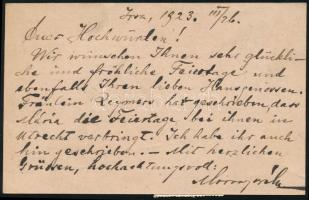 1923. III/26.
Euer Hochwürden!
Wir wünschen Ihnen sehr glückli-
che und fröhliche Feiertage und
ebenfalls Ihren lieben Hausgenossen.
Fräulein hat geschrieben, dass
Mária die Feiertage, bei ihnen in
Utrecht verbringt. Ich habe ihr auch
hin geschrieben. — Mit herzlichen
Grüssen, hochachtungsvoll: